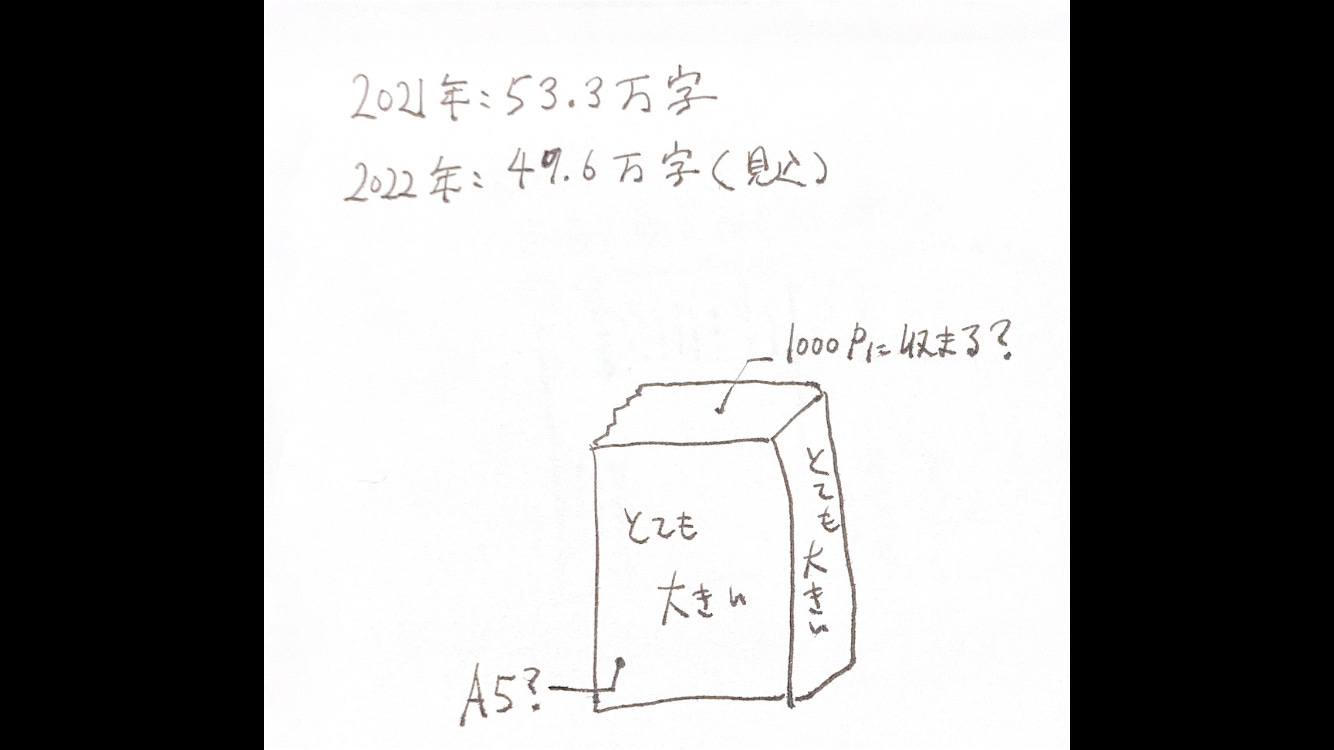 2021年:53.3万字
2022年:49.6万字(見込)
1000P.に収まる?
とても
大きい
とても大きい
A5?